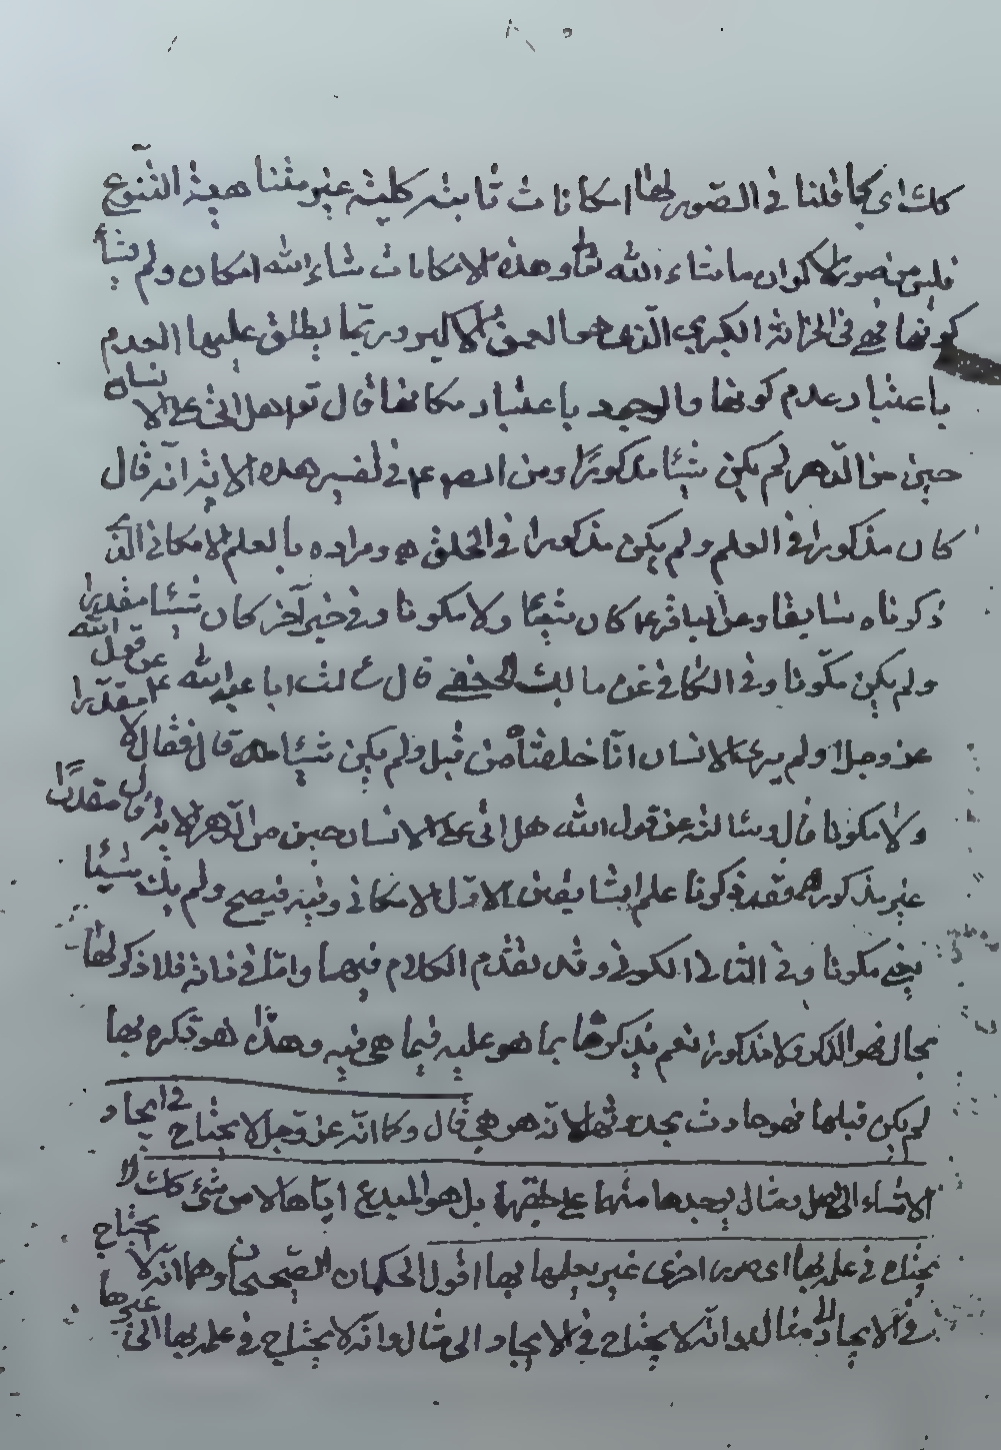 كك اى كما قلنا فى الصور لها امكانات ثابتة كلية غير متناهية التنوع
فليس من صور الاكوان ما شاء الله وهذه الامكانات شاء الله امكان ولم يشأ
كونها فهى فى الخزانة الكبرى التى هو العمق الاكبر وربّما يطلق عليها العدم
باعتبار عدم كونها والوجود باعتبار مكانها قال تع هل اتى على الانسان
حين من الدّهر لم يكن شيئا مذكورًا وعن الص ع فى تفسير هذه الاية انه قال
كان مذكورا فى العلم ولم يكن مذكورا فى الخلق ه ومراده بالعلم الامكانى الذى
ذكرناه سابقا وعن الباقر ع كان شيئا ولا مكونا وفى خبر آخر كان شيئا مقدرا
ولم يكن مكوّنا وفى الكافى عن مالك الجهنى قال سئلت ابا عبد الله ع عن قول الله
عز وجل اولم ير الانسان انّا خلقناه من قبل ولم يكن شيئا قال فقال لا مقدّرا
ولا مكونا قال وسالته عن قوله هل اتى على الانسان حين من الدّهر الاية قال مقدرًا
غير مذكور كونا علم السّابقين الاوّل الامكانى وفيه فيصح ولم يك شيئا
يعنى مكونا وفى الثانى الكونى وقد تقدّم الكلام فيهما وامّا فى ذاته فلا ذكر لها
بحال فهو الذاكر ولا مذكور نعم يذكرها بما هو عليه فيما هى فيه وهذا هو ذكره بها
لم يكن قبلها فهو حادث بحدوثها لانه هو هى قال وكما انّه عزّ وجل لا يحتاج فى ايجاد
الاشياء الى مثال يوجدها منها على طبقها بل هو المبدع ايّاها لا من شئ كك لا
يحتاج فى علمه بها اى صور اخرى غير يعلمها بها اقول الحكمان الصّحيحان وهما انّه لا يحتاج
فى الايجاد الى مثال وانّه لا يحتاج فى الايجاد الى مثال وانّه لا يحتاج فى علمه بها الى غيرها